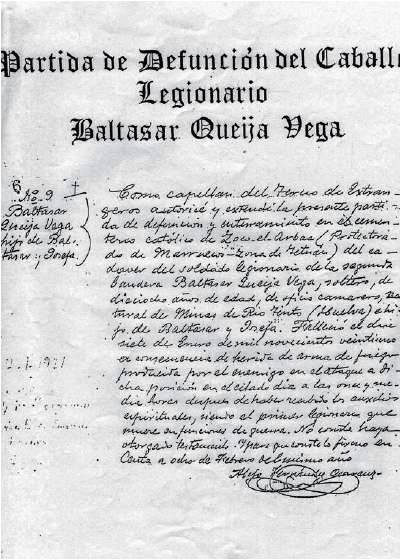 Partida de Defunción del Caball
Legionario
Baltasar Queija Vega
6
No. 9
Baltasar
Queija Vega
hijo de Bal-
tasar y Josefa.
Como capellan del Tercio de Extran-
geros autoricé y extendí la presente parti-
da de defunción y enterramiento en el cemen-
terio católico de Zoco-el-Arbaa (Protectora-
do de Marruecos-zona de Tetuán) del ca-
daver del soldado legionario de la segunda
bandera Baltasar Queija Vega, soltero, de
dieciocho años de edad, de oficio camarero, na-
tural de Minas de Rio Tinto (Huelva) e hi-
jo de Baltasar y Josefa. Falleció el dia
siete de Enero de mil novecientos veintiuno
a consecuencia de herida de arma de fuego
producida por el enemigo en el ataque a di-
cha posición en el citado dia a las once y me-
dia horas despues de haber recibido los auxilios
espirituales, siendo el primer legionario que
muere en funciones de guerra. No consta haya
otorgado testamento. Y para que conste lo firmo en
Ceuta a ocho de Febrero del mismo año